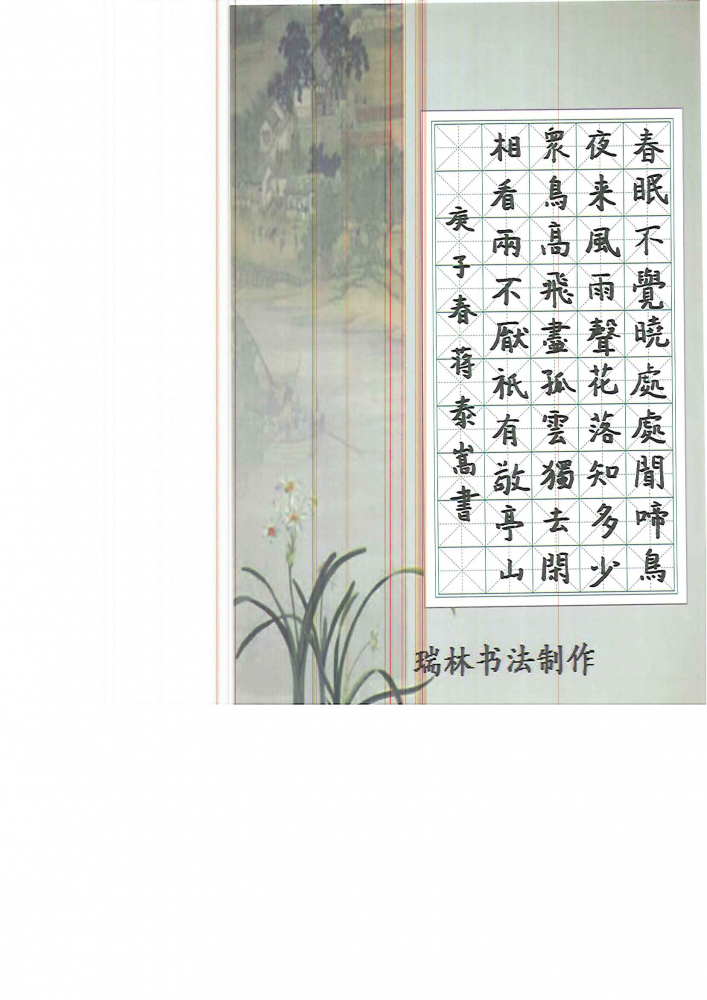 春眠不覺曉處處聞啼鳥
夜来風雨聲花落知多少
衆鳥高飛盡孤雲獨去閑
相看兩不厭祇有敬亭山
庚子春蒋泰嵩書
瑞林书法制作